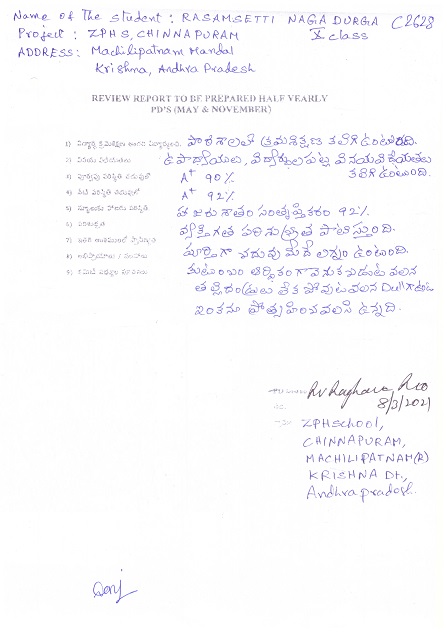 Name of The student : RASAMSETTI NAGA DURGA C2628
Project : ZPHS, CHINNAPURAM X class
ADDRESS: Machilipatnam Mandal
Krishna, Andhra Pradesh
REVIEW REPORT TO BE PREPARED HALF YEARLY
PD'S (MAY & NOVEMBER)
1) పాఠశాలలో క్రమశిక్షణ కలిగి ఉంటుంది.
2) ఉపాధ్యాయులు, విద్యార్థుల పట్ల వినయ విధేయతలు
కలిగి ఉంటుంది.
3) A+ 90%
4) A+ 92%
5) హాజరు శాతం సంతృప్తికరం 92%
6) వ్యక్తిగత పరిశుభ్రత పాటిస్తుంది.
7) పూర్తిగా చదువు మీదే లక్ష్యం ఉంటుంది.
8) కుటుంబం ఆర్థికంగా వెనుకబడుట వలన
9) తల్లిదండ్రులు లేకపోవుట వలన Dull గా ఉంది
ఇంకనూ ప్రోత్సహించవలసి ఉన్నది.
RV Raghava Rao
8/3/2021
ZPHSchool,
CHINNAPURAM,
MACHILIPATNAM(R)
KRISHNA Dt.,
Andhra pradesh.